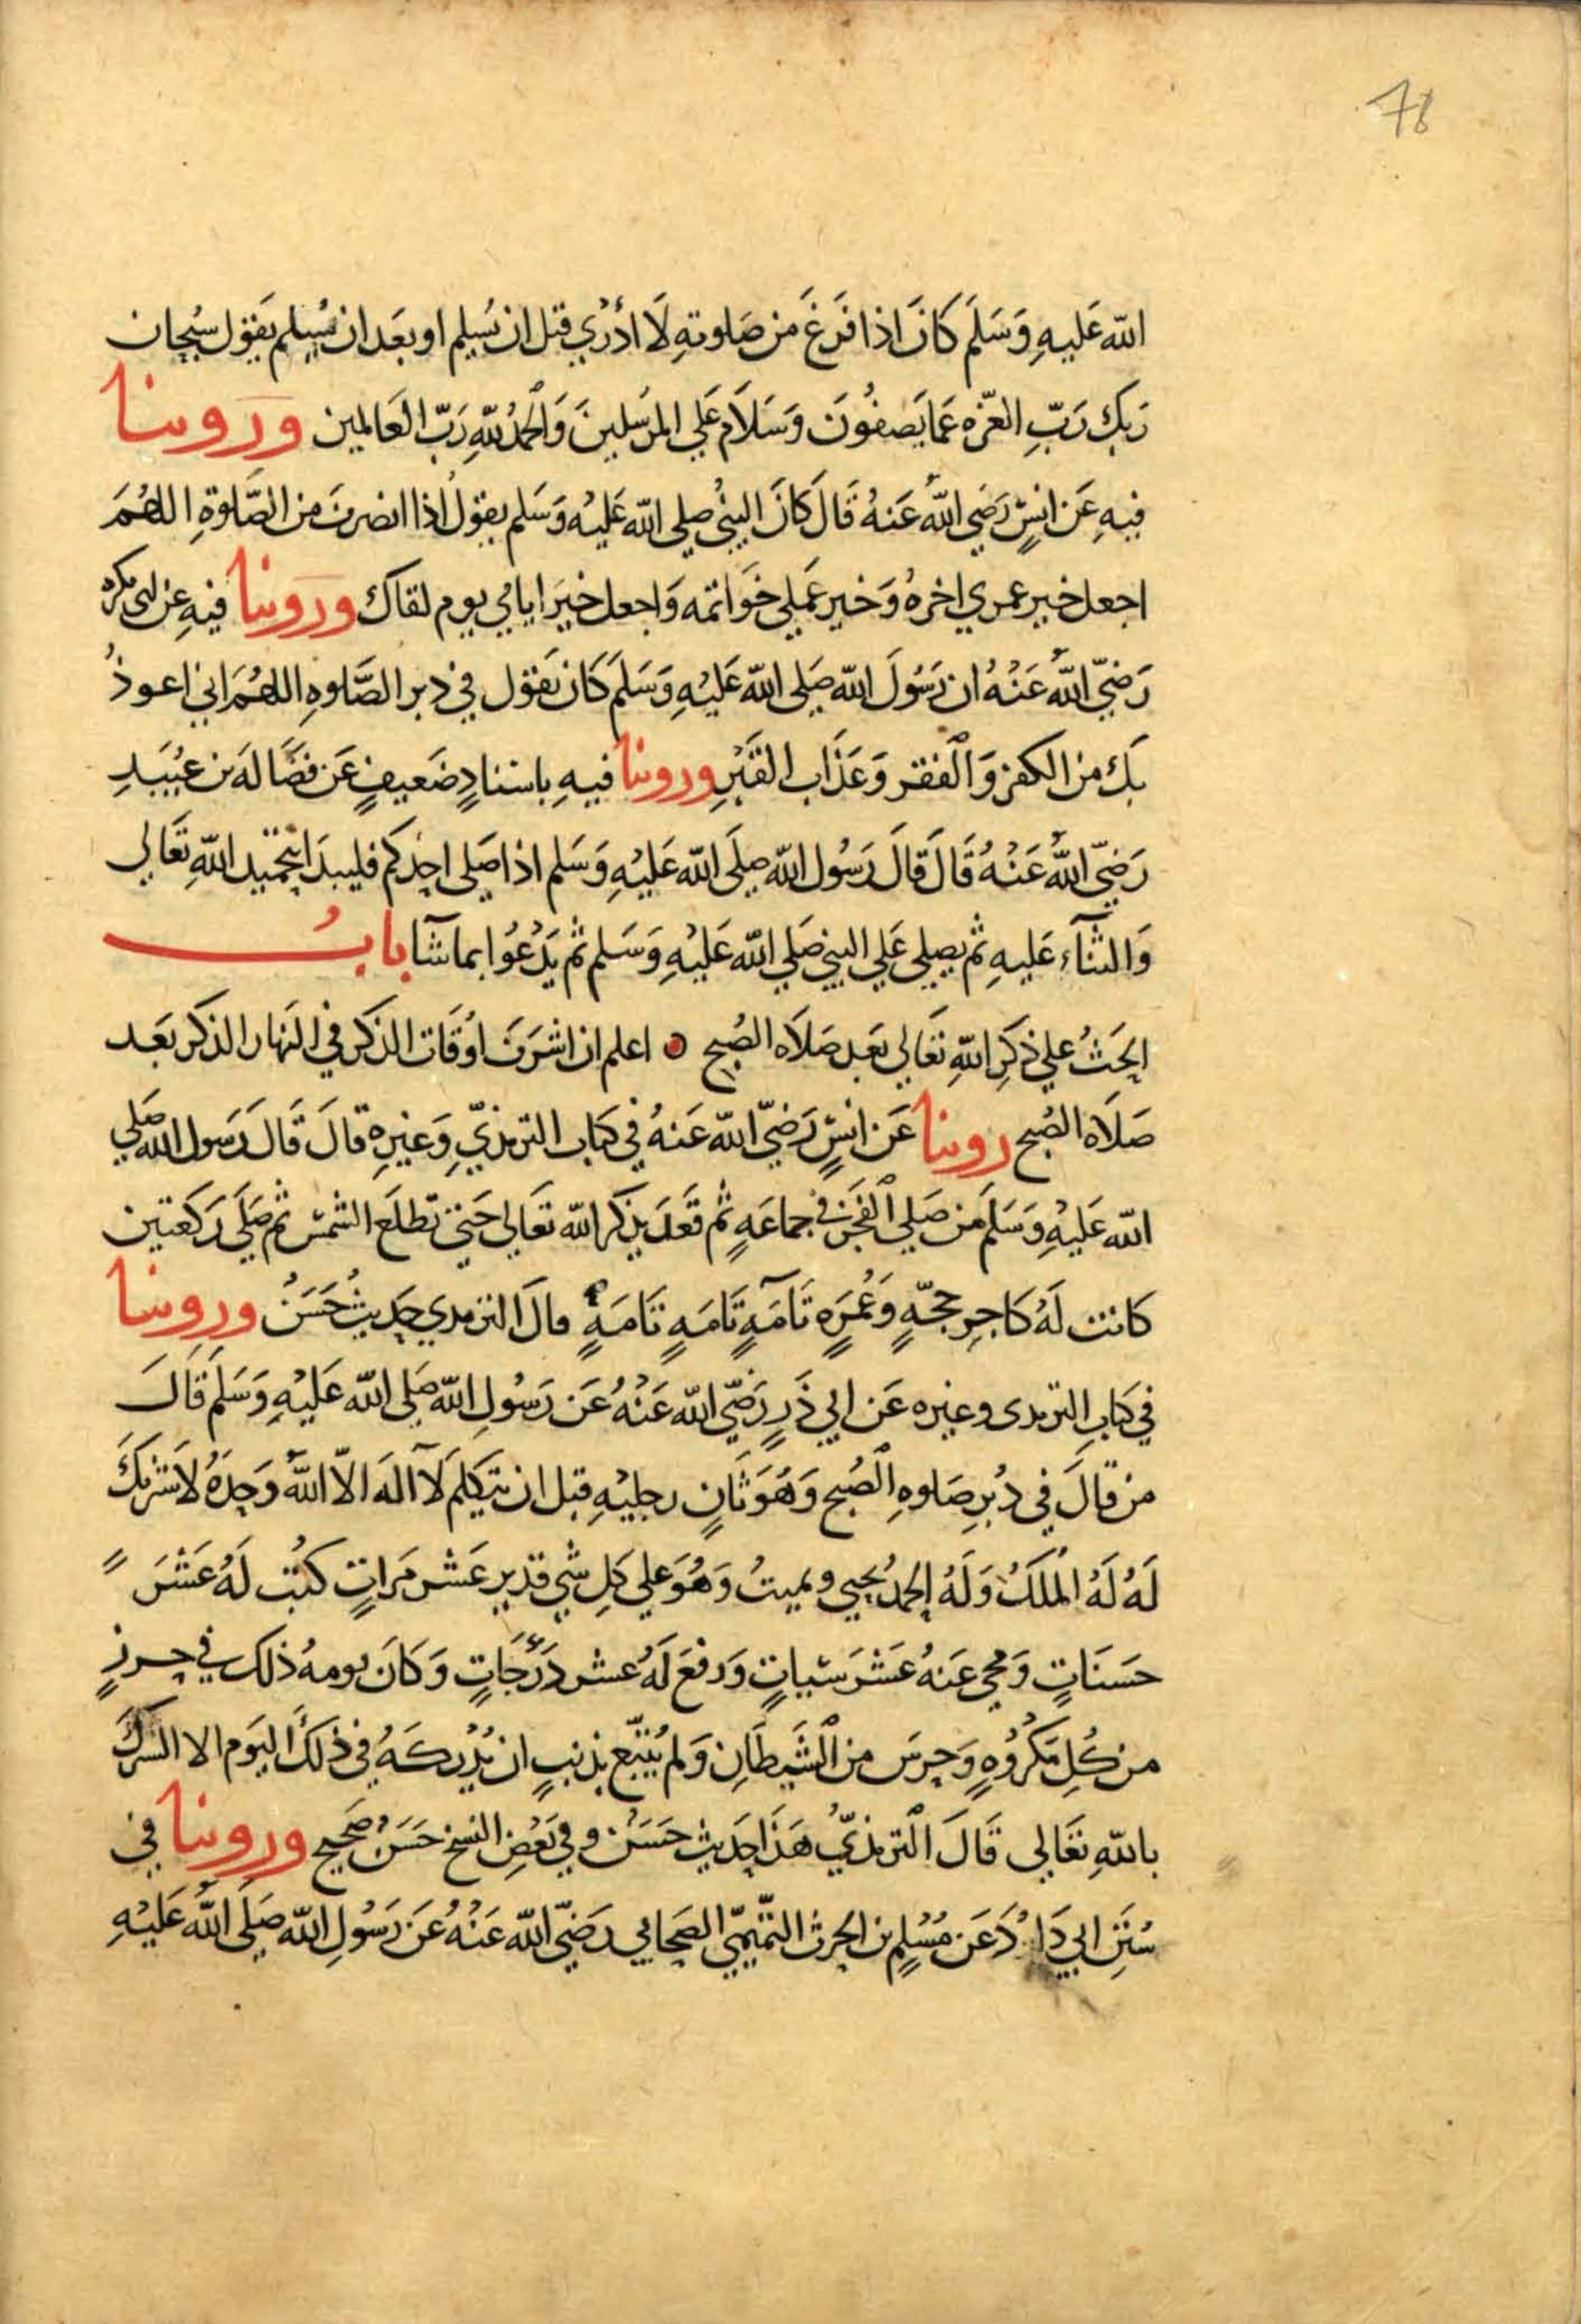 78
الله عَليهِ وَسَلَمَ كَانَ اذا فَرَغَ مَن صَلوتهِ لَا ادْرِي قبل ان يُسَلِم او بعَد ان يُسَلِم يَقول سُبحان
رَبك رَبِّ العزة عَما يَصفُونَ وَسَلَام عَلي المرسَلينَ وَالحمدُ للهِ رَبّ العَالمين ورَوينا
فيهِ عَن انسٍ رَضَي اللهُ عَنهُ قَالَ كانَ النبيُ صلى الله عَليْه وَسَلم يقولُ اذا انصرفَ من الصَّلوةِ اللهُمَ
اجعل خير عمري اخرهُ وَخير عَملي خَوَاتمه وَاجعل خيَر ايامي يوم لقاك وروينا فيهِ عن ابى بكره
رَضيّ اللهُ عَنْهُ ان رَسُولَ الله صَلى الله عَليْهِ وَسَلمَ كَان يَقول في دبر الصَّلوهِ اللهُمَ اني اعوذُ
بَك من الكفر وَالفقر وَعَذَاب القَبْرِ وروينا فيهِ باسنادٍ ضَعيفٍ عَن فضَالهَ بن عبُيَدِ
رَضيّ اللهُ عَنْهُ قَالَ قَالَ رَسُول الله صلَى الله عَليْهِ وَسَلم اذا صَلى احدكم فليبدَا بتحميد اللهِ تعَالي
وَالثنآء عَليهِ ثم يصلي عَلي النبيّ صَلي الله عَليْهِ وَسَلم ثم يَدْعُوا بما شآا بابُ
الحَثُ علي ذكرِ اللهِ تعَالي بَعَد صَلَاه الصُبح اعلم ان اشرَفَ اوْقَات الذكر في النهار الذكر بعَد
صَلَاه الصُبح روينا عَن انسٍ رَضيّ الله عَنهُ في كتاب الترمذيّ وَغيرِهِ قالَ قَالَ رَسول الله صَلي
الله عَليْهِ وَسَلمَ من صَلي الفَجرَ في جماعَهٍ ثم قعَدَ يذكر الله تعَالي حَتي تطلعَ الشمس ثم صَلَي رَكعتين
كانت لَهُ كاجرِ حجّهٍ وَعُمرَهٍ تآمَهٍ تَامَهٍ تَامَهٍ قالَ الترمدي حَديثُ حَسَنُ وروينا
في كتَابِ الترمدى وغيره عَن ابي ذَرٍ رَضيّ الله عَنْهُ عَن رَسُولِ الله صَلى الله عَليْهِ وَسَلمَ قَالَ
من قالَ في دُبرِ صَلوهِ الصُبح وَهُوَ ثَانٍ رجليْهِ قبل ان يتكلم لَآ الهَ الاّ اللهُ وَحدَهُ لَا شريكَ
لَهُ لَهُ المُلكُ وَلَهُ الحمدُ يحيي ويميتُ وَهُوَ علي كلِ شي قدير عَشر مَراتٍ كتُبت لَهُ عَشَرَ
حسَنَاتٍ وَمحي عَنهُ عَشَر سَيئاتٍ وَرفعَ لَهُ عشر دَرَجَاتٍ وَكَانَ يومهُ ذلك في حرزٍ
من كُلِ مَكْرُوُهٍ وَحرسَ من الشَيطَانِ وَلم يُتبّع بذنبٍ ان يُدْركهُ في ذلَكَ اليَوم الا الشركَ
باللهِ تعَالي قَالَ الترمذيّ هَذَا حَديث حسَنْ وفي بَعضِ النسخ حَسَنُ صَحيح وروينا في
سُننِ ابي دَاودَ عَن مُسْلِم بن الحرث التميميّ الصحابي رَضيّ الله عَنْهُ عَن رَسُولِ الله صَلى الله عَليْهِ